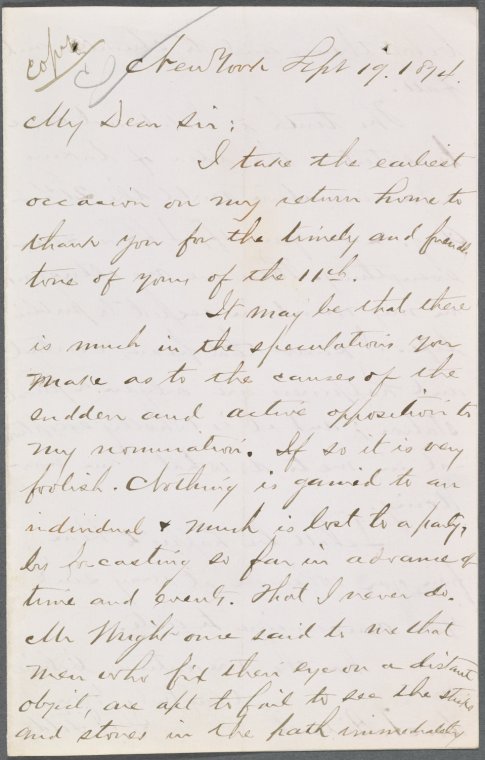 copy
New York Sept 19. 1874.
My Dear Sir:
I take the earliest
occasion on my return home to
thank you for the timely and friendly
tone of yours of the 11th.
It may be that there
is much in the speculations you
make as to the causes of the
sudden and active opposition to
my nomination. If so it is very
foolish. Nothing is gained to an
individual & much is lost to a party,
by forcasting so far in advance of
time and events. That I never do.
Mr Wright once said to me that
men who fix their eye on a distant
object, are apt to fail to see the sticks
and stones in the path immediately